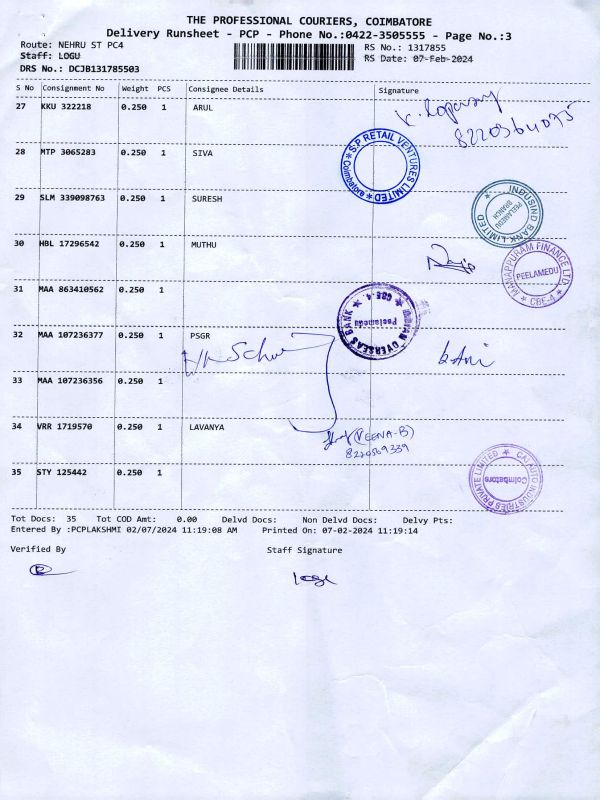 THE PROFESSIONAL COURIERS, COIMBATORE
Delivery Runsheet - PCP - Phone No.:0422-3505555 - Page No.:3
Route: NEHRU ST PC4
RS No.: 1317855
Staff: LOGU
RS Date: 07-Feb-2024
DRS No.: DCJB131785503
S No Consignment No Weight PCS Consignee Details Signature
27 KKU 322218 0.250 1 ARUL
8220364075
28 MTP 3065283 0.250 1 SIVA
S.P RETAIL VENTURES LIMITED
Coimbatore
29 SLM 339098763 0.250 1 SURESH
INDUSIND BANK LIMITED
PEELAMEDU
BRANCH
30 HBL 17296542 0.250 1 MUTHU
MANAPPURAM FINANCE LTD
PEELAMEDU
CBE-4
31 MAA 863410562 0.250 1
INDIAN OVERSEAS BANK
Peelamedu
CBE-4.
32 MAA 107236377 0.250 1 PSGR
33 MAA 107236356 0.250 1
34 VRR 1719570 0.250 1 LAVANYA
(VEENA-B)
8220569339
35 STY 125442 0.250 1
CAI AUTO INDUSTRIES PRIVATE LIMITED
Coimbatore
Tot Docs: 35 Tot COD Amt: 0.00 Delvd Docs: Non Delvd Docs: Delvy Pts:
Entered By :PCPLAKSHMI 02/07/2024 11:19:08 AM Printed On: 07-02-2024 11:19:14
Verified By Staff Signature